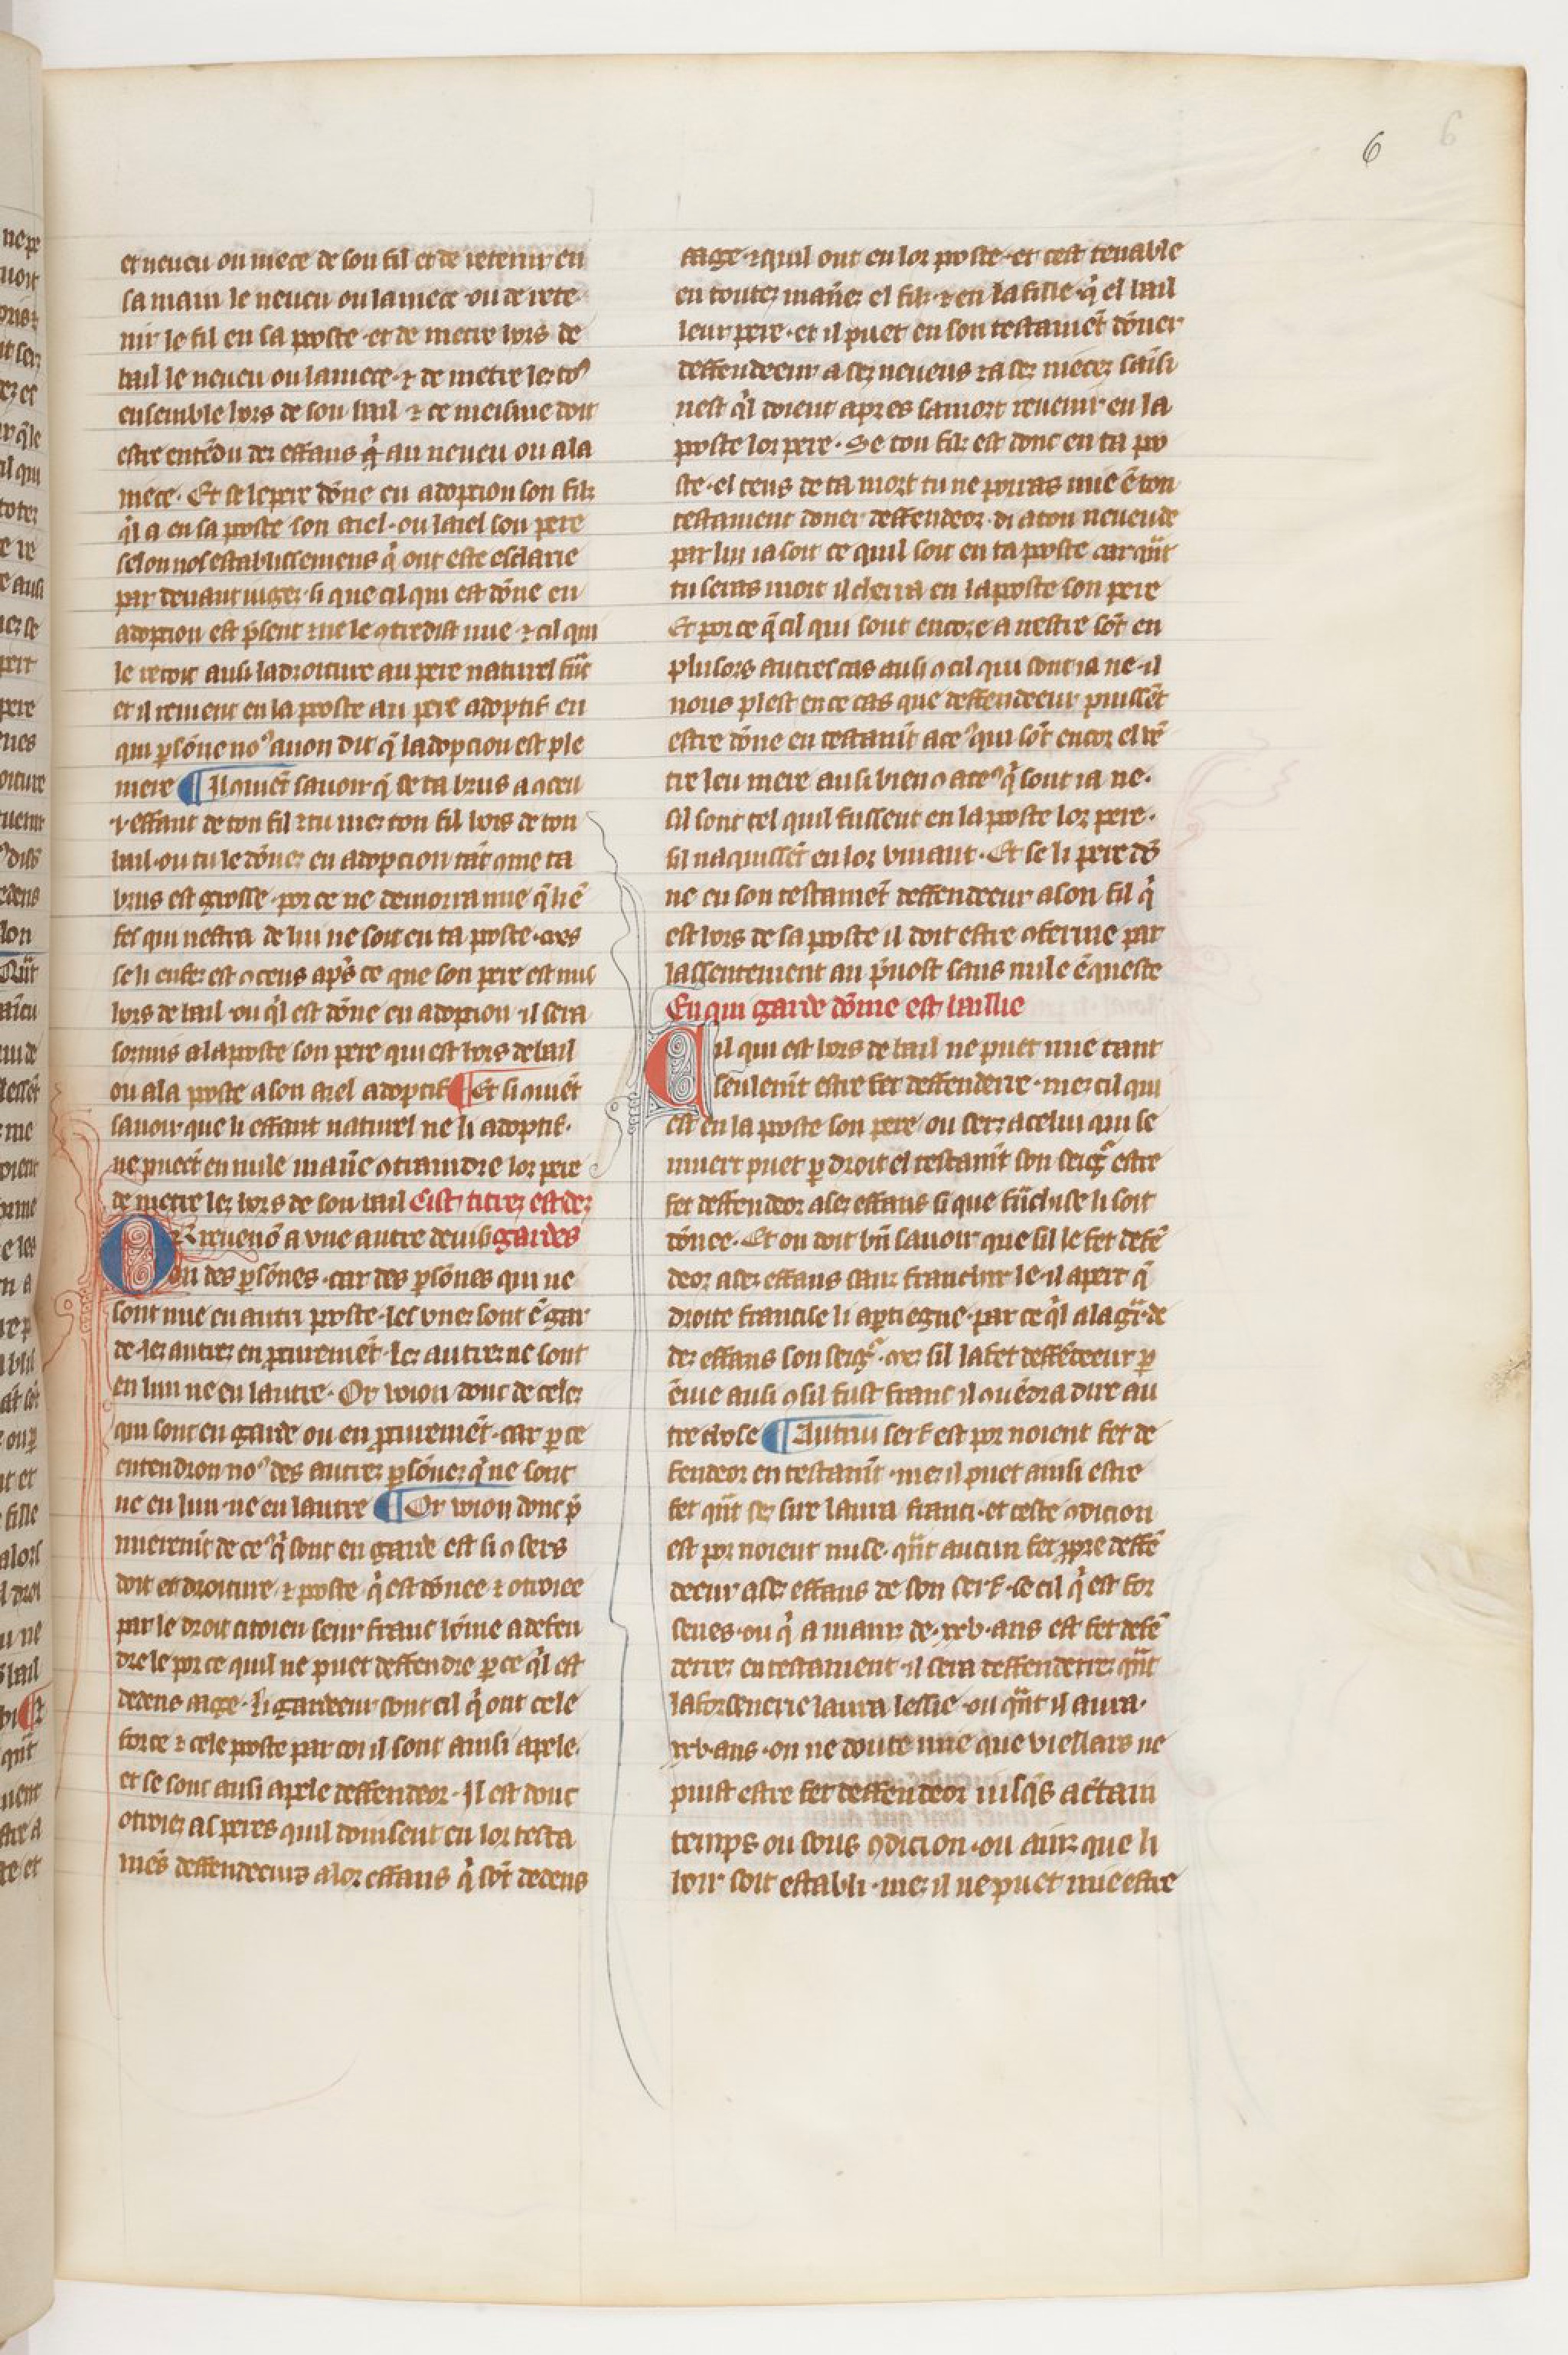 6
et neueu ou niece de son fil et de retenir en
sa main le neueu ou la niece · ou de rete
nir le fil en sa poste · et de metre hors de
bail le neueu ou la niece · ⁊ de metre lez toꝰ
ensemble hors de son bail ⁊ ce meisme doit
estre entēdu dez effans q̄ au neueu ou a la
niece · Et se le pere dōne en adoption son filz
q̓l a en sa poste son aiel · ou laiel son pere
selon nos establissemens q̓ ont este esclarie
par deuant iugez · si que cil qui est dōne en
adoption est p̄sent ⁊ ne le ꝯtredist mie · ⁊ cil qui
le recoit ausi la droiture au pere naturel
et il reuient en la poste au pere adoptif en
qui ꝑsōne noꝰ auon dit q̄ ladopcion est ple
niere ¶ Il ꝯuiēt sauoir q̄ se ta brus a ꝯceu
⁊ effant de ton fil ⁊ tu mez ton fil hors de ton
bail · ou tu le dōnez en adopcion tāt ꝯme ta
brus est grosse · por ce ne demorra mie q̄ li ē
fes qui nestra de lui ne soit en ta poste · mes
se li enfez est ꝯceus ap̓s ce que son pere est mis
hors de bail · ou q̓l est dōne en adoption · il sera
sormis a la poste son pere qui est hors de bail
ou a la poste a son aiel adoptif ¶ Et si ꝯuiēt
sauoir que li effant naturel ne li adoptif ·
ne pueēt en nule maūe ꝯtraindre lor pere
de metre lez hors de son bail Cist titrez est dez
OR reuenō a vne autre deuisi gardes
on des ꝑsōnes · car des ꝑsōnes qui ne
sont mie en autri poste · les vnez sont ē gar
de · lez autrez en p̱curemēt · lez autrez ne sont
en lun ne en lautre · Or voion donc de celez
qui sont en garde ou en p̱curemēt · car ꝑ ce
entendron noꝰ des autrez ꝑsōnez q̓ ne sont
ne en lun · ne en lautre ¶ Or voion donc p̓
mierenīt de ceꝰ q̓ sont en garde est si ꝯ sers
doit et droiture · ⁊ poste · q̓ est dōnee ⁊ otroiee
par le droit citoien seur franc hōme a defen
dre le por ce quil ne puet deffendre ꝑ ce q̓l est
dedens aage · li gardeeur sont cil q̓ ont cele
force ⁊ cele poste par coi il sont ainsi apele ·
et se sont ausi apele deffendeor · Il est donc
otroiez as peres quil doinsent en lor testa
mēs deffendeeurs a lor effans q̓ sōt dedens
aage · ⁊ quil ont en lor poste · et cest tenable
en toutez maūez el filz · ⁊ en la fille · q̓ el bail
leur pere · et il puet en son testamēt dōner
deffendeeur a sez neueus ⁊ a sez niecez saīsi
nest q̓l doient apres sa mort reuenir en la
poste lor pere · Se ton filz est donc en ta po
ste · el tens de ta mort tu ne porras mie ē ton
testament doner deffendeor · di a ton neueu de
par lui ia soit ce quil soit en ta poste car q̄nt
tu seras mort il cherra en la poste son pere
Et por ce q̄ cil qui sont encore a nestre sōt en
plusors autres cas ausi ꝯ cil qui sont ia ne · il
nous plest en ce cas que deffendeeur puissēt
estre dōne en testamīt a ceꝰ qui sōt encor el vē
tre leu mere ausi bien ꝯ a ceꝰ q̓ sont ia ne ·
sil sont tel quil fussent en la poste lor pere ·
sil naquissēt en lor viuant · Et se li pere dō
ne en son testamēt deffendeeur a son fil q̓
est hors de sa poste il doit estre ꝯferme par
lassentement au p̓uost sans nule ēqueste
En qui garde dōme est baillie
Cil qui est hors de bail ne puet mie tant
seulemīt estre fet deffenderre · mez cil qui
est en la poste son pere · ou serz a celui qui se
muert puet ꝑ droit el testamīt son seigr̄ estre
fet deffendeor a sez effans si que frāchise li soit
dōnee · Et on doit bn̄ sauoir que sil le fet defē
deor a sez effans sanz franchir le · il apert q̄
droite francise li aꝑtiegne · par ce q̓l a la gar̄de
dez effans son seigr̄ · mez sil la fet deffēdeeur ꝑ
ēuie ausi ꝯ sil fust franc il ꝯuēdra dire au
tre chose ¶ Autrui serf est por noient fet de
fendeor en testamīt · mez il puet ainsi estre
fet q̄nt sez sire laura franci · et ceste ꝯdicion
est por noient nule · q̄nt aucun fet p̱pre deffē
deeur a sez effans de son serf · se cil q̓ est for
senes · ou q̓ a mainz de · xxv · ans est fet defē
derrez en testament · il sera deffenderrez q̄nt
la forsenerie laura lessie · ou q̄nt il aura ·
xxv · ans · on ne doute mie que viellars ne
puist estre fet deffendeor iusq̓s a c̄tain
temps ou sous ꝯdicion · ou ainz que li
hoir soit establi · mez il ne puet mie estre